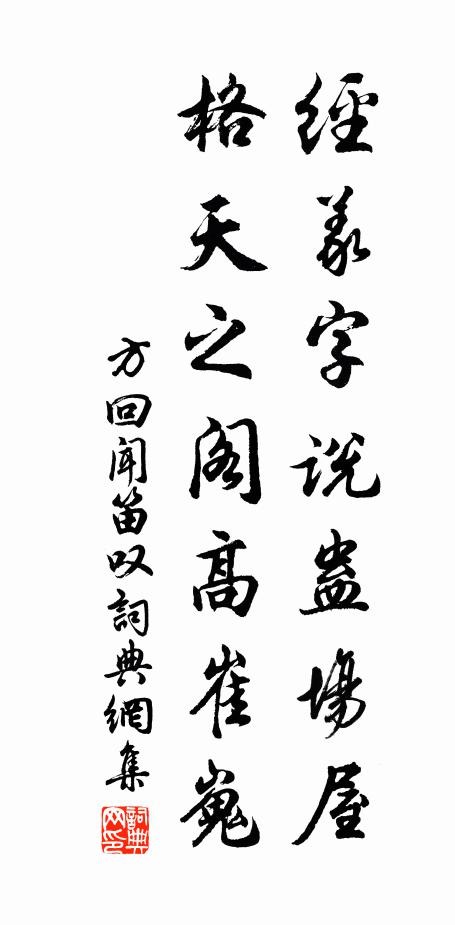 經義字説蠱場屋
格天之閣高崔嵬
方回聞笛叹詞典網集
詞典网印